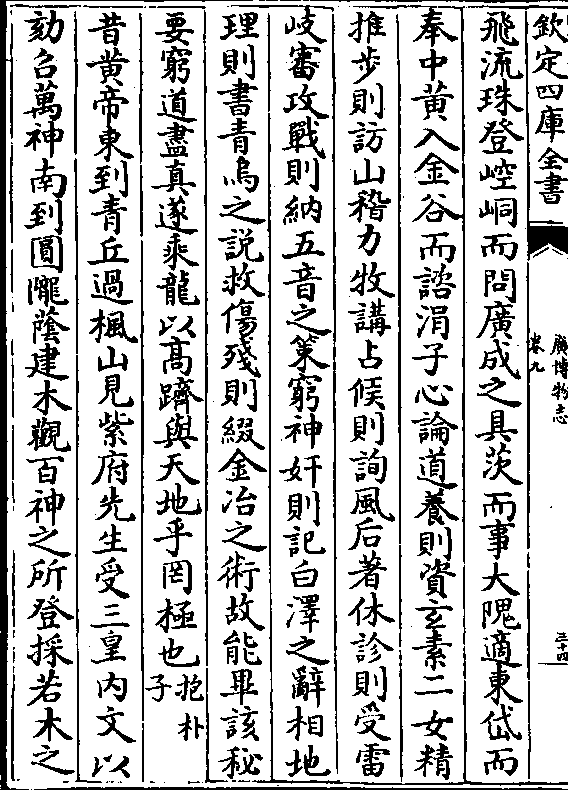 欽定四庫全書
廣博物志
卷九
三十四
飛流珠登崆峒而問廣成之具茨而事大隗適東岱而
奉中黃入金谷而諮涓子心論道養則資玄素二女精
推步則訪山稽力牧講占候則詢風后著休診則受雷
岐審攻戰則納五音之策窮神奸則記白澤之辭相地
理則書青烏之說救傷殘則綴金冶之術故能畢該秘
要窮道盡真遂乘龍以高躋與天地乎罔極也抱朴子
昔黃帝東到青丘過楓山見紫府先生受三皇內文以
劾召萬神南到圓隴蔭建木觀百神之所登採若木之